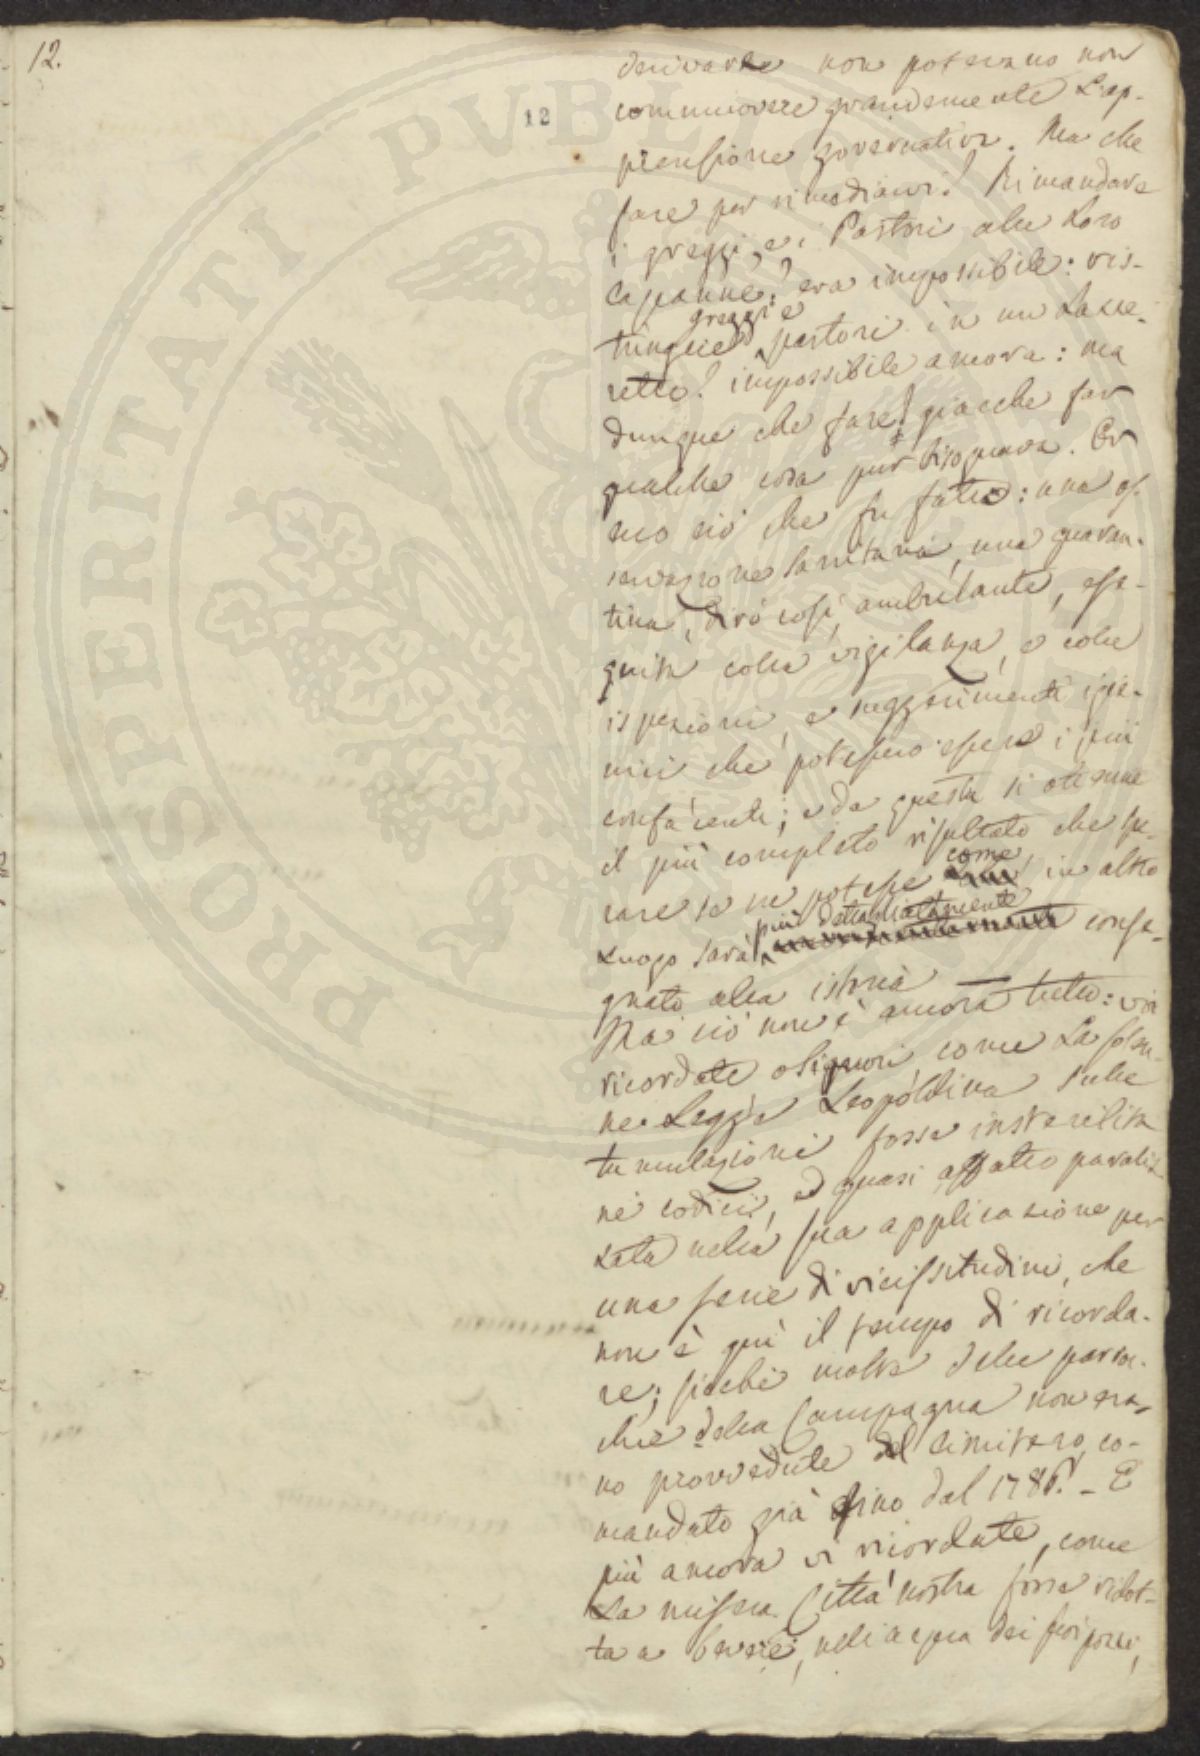 12.
12
derivarne non potevano non
commuovere grandemente L'ap-
prensione governativa. Ma che
fare per rimediarvi? Rimandare
i greggi, e i Pastori alle Loro
Capanne? era impossibile: ris-
tringere greggi e pastori in un Lazze-
retto? impossibile ancora: ma
dunque che fare? giacche far
qualche cosa pur bisognava. Ec-
neo ciò che fu fatto: una os-
servazione sanitaria, una quaran-
tina, dirò così, ambulante, ese-
guita colla vigilanza, e colle
ispezioni, e suggerimenti igie-
nici che potessero essere i più
confacenti; e da questa si ottenne
il più completo risultato che spe-
rare se ne potesse come in altro
Luogo sarà più dettagliatamente conse-
gnato alla istoria
Ma ciò non è ancora tutto: voi
ricordate o Signori, come La solen-
ne Legge Leopoldina sulle
tumulazioni fosse insterilita
nè codici, ed quasi affatto paraliz
zata nella sua applicazione per
una serie di vicissitudini, che
non è quì il tempo di ricorda-
re; sicchè molte delle parroc-
chie della Campagna non era-
no provvedute del Cimitero co-
mandato già fino dal 178 . - E
più ancora vi ricordate, come
La misera Città nostra fosse ridot-
ta a bevere, nell'acqua dei suoi pozzi,